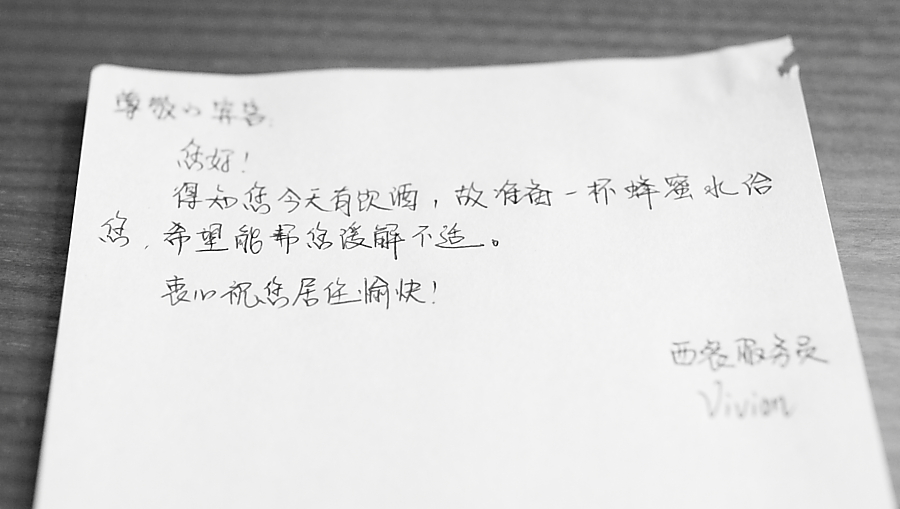 尊敬的宾客:
您好!
得知您今天有饮酒,故准备一杯蜂蜜水给
您,希望能帮您缓解不适。
衷心祝您居住愉快!
西餐服务员
Vivian